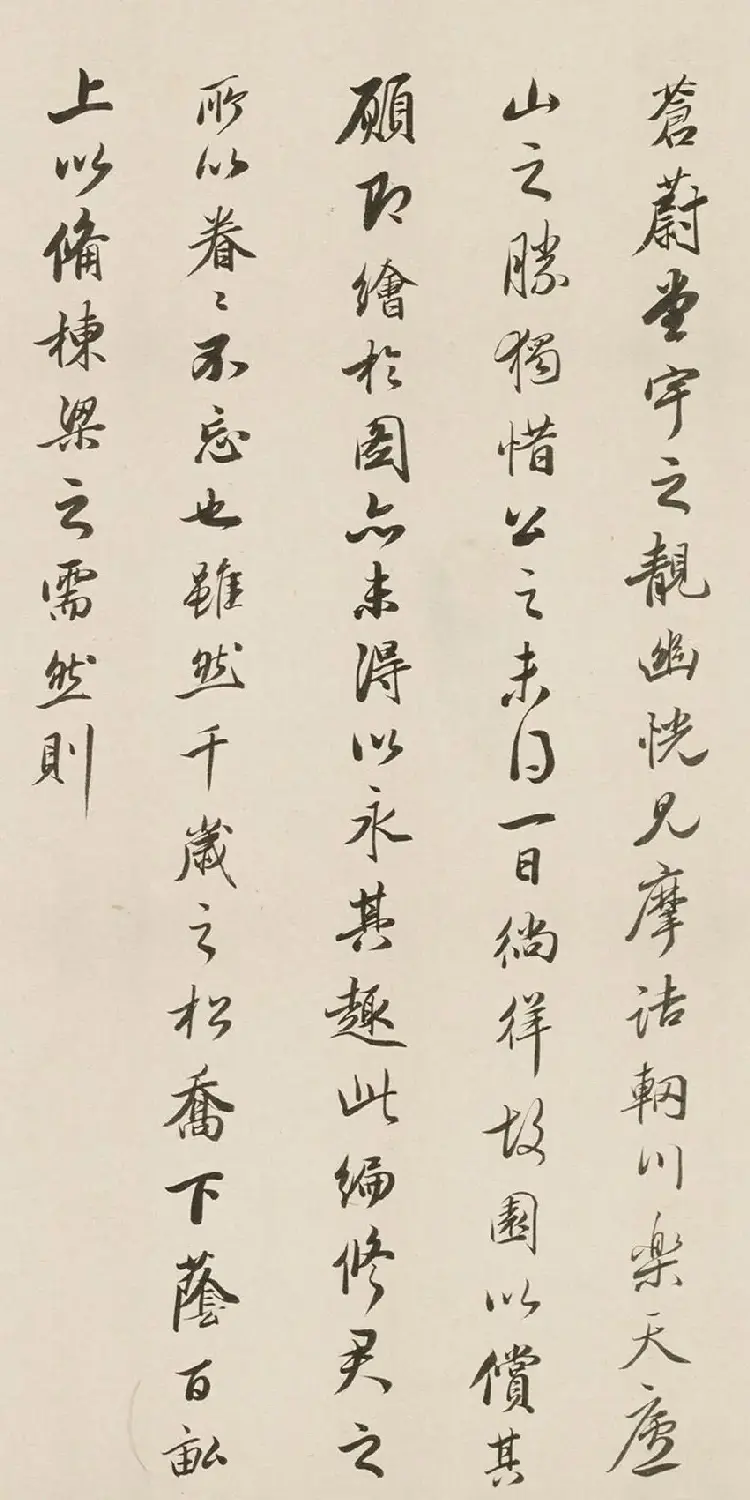 蒼蔚堂宇之靚幽恍見摩詰輞川樂天廬
山之勝獨惜公之未得一日徜徉故園以償其
願即繪於圖亦未得以永其趣此編修君之
所以眷〻不忘也雖然千歲之松喬下蔭百畝
上以備棟梁之需然則